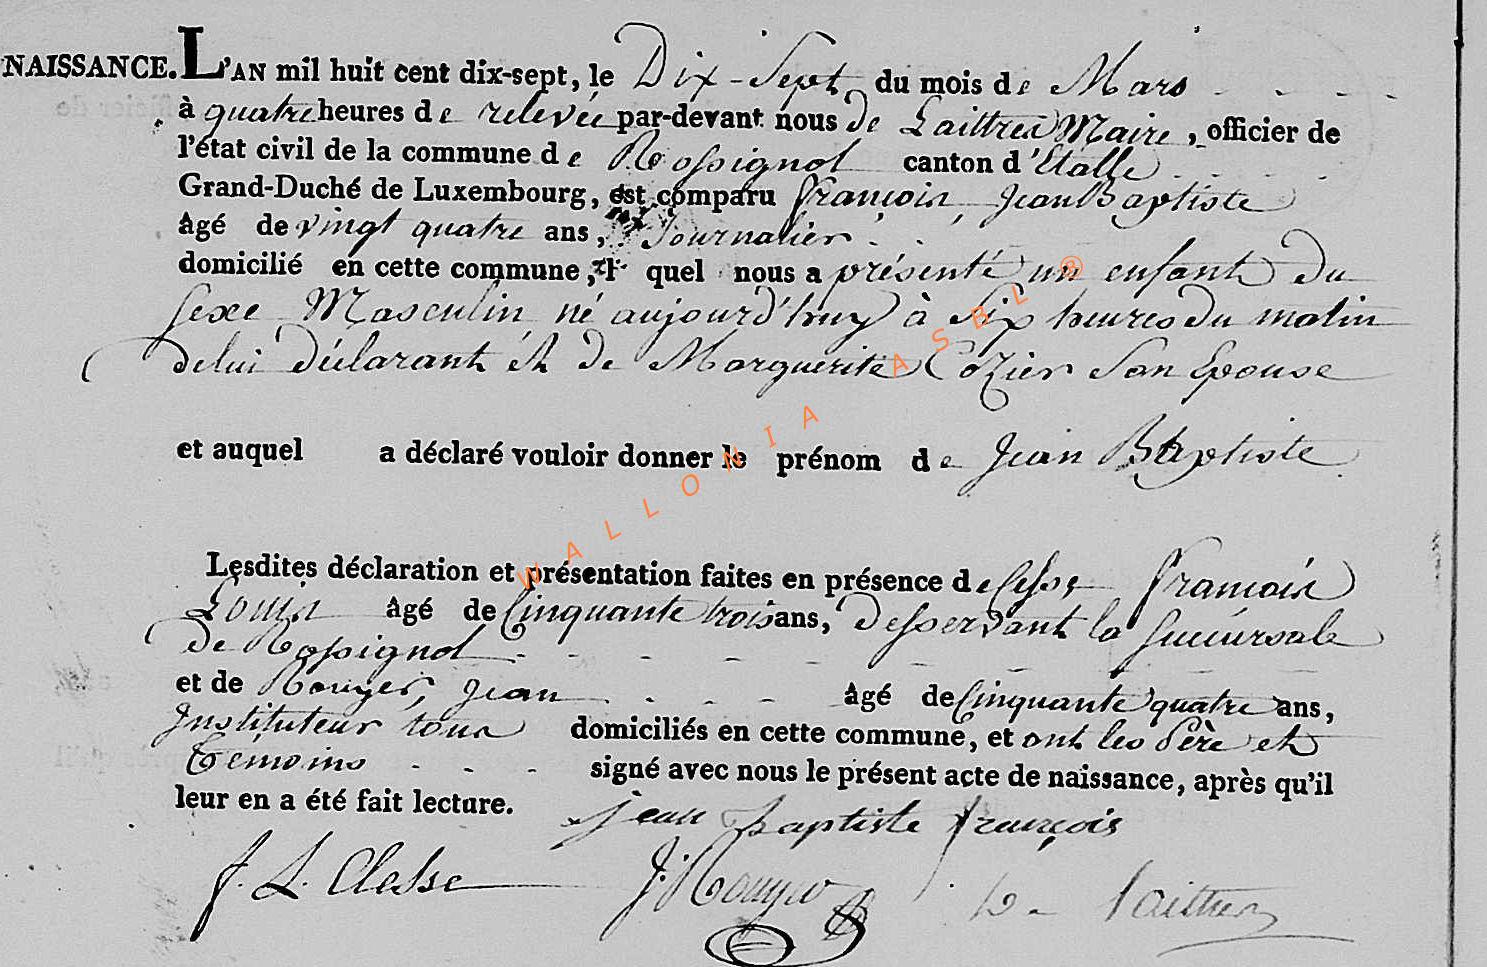 NAISSANCE. L'AN mil huit cent dix-sept, le Dix-Sept du mois de Mars
à quatre heures de relevée par-devant nous De Laittres Maire, officier de
l'état civil de la commune de Rossignol canton d'Etalle
Grand-Duché de Luxembourg, est comparu François, Jean Baptiste
âgé de vingt quatre ans, Journalier
domicilié en cette commune, quel nous a présenté un enfant du
sexe Masculin né aujourd'huy à Six heures du matin
de lui déclarant et de Marguerite Cozier Son Epouse
et auquel a déclaré vouloir donner le prénom de Jean Baptiste
Lesdites déclaration et présentation faites en présence de Clesse François
Louis âgé de Cinquante trois ans, Desservant la Succursale
de Rossignol
et de Rouyer, Jean âgé de Cinquante quatre ans,
Instituteur tous domiciliés en cette commune, et ont les Père et
témoins signé avec nous le présent acte de naissance, après qu'il
leur en a été fait lecture.
jean baptiste françois
f. L. Clesse J. Rouyer De Laittres
WALLONIA ASBL ®